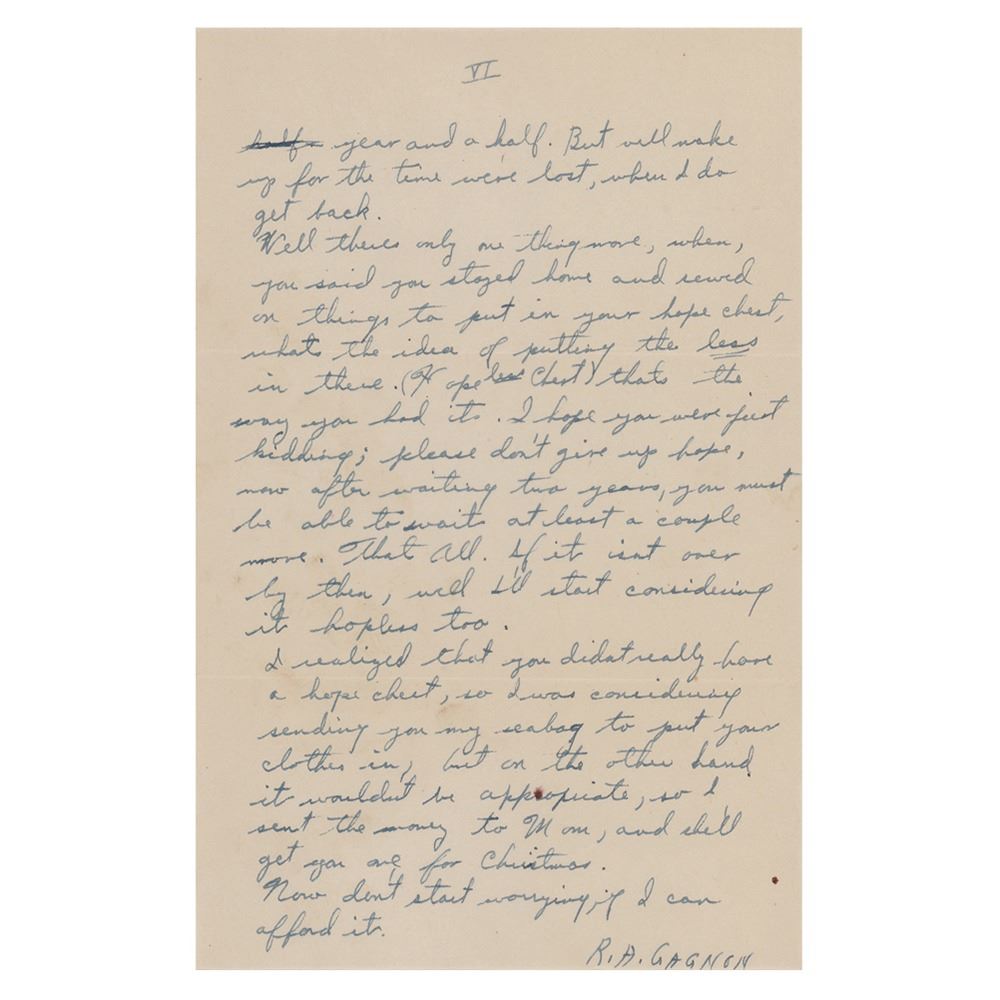 VI
half a year and a half. But will make
up for the time were lost, when I do
get back.
Well theres only one thing more, when,
you said you stayed home and sewed
on things to put in your hope chest,
whats the idea of putting the less
in there. (Hopeless Chest) thats the
way you had it. I hope you were just
kidding; please don't give up hope,
now after waiting two years, you must
be able to wait at least a couple
more. That All. If it isnt over
by then, well I'll start considering
it hopless too.
I realized that you didnt really have
a hope chest, so I was considering
sending you my seabag to put your
clothes in, but on the other hand
it wouldn't be appropiate, so I
sent the money to Mom, and she'll
get you one for Christmas.
Now don't start worrying, if I can
afford it.
R.A. GAGNON